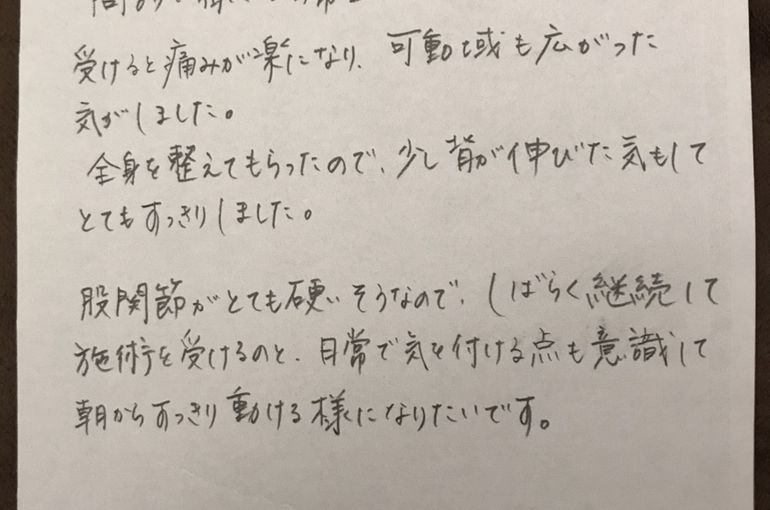 受けると痛みが楽になり、可動域も広がった
気がしました。
全身を整えてもらったので、少し背が伸びた気もして
とてもすっきりしました。
股関節がとても硬いそうなので、しばらく継続して
施術を受けるのと、日常で気を付ける点も意識して
朝からすっきり動ける様になりたいです。